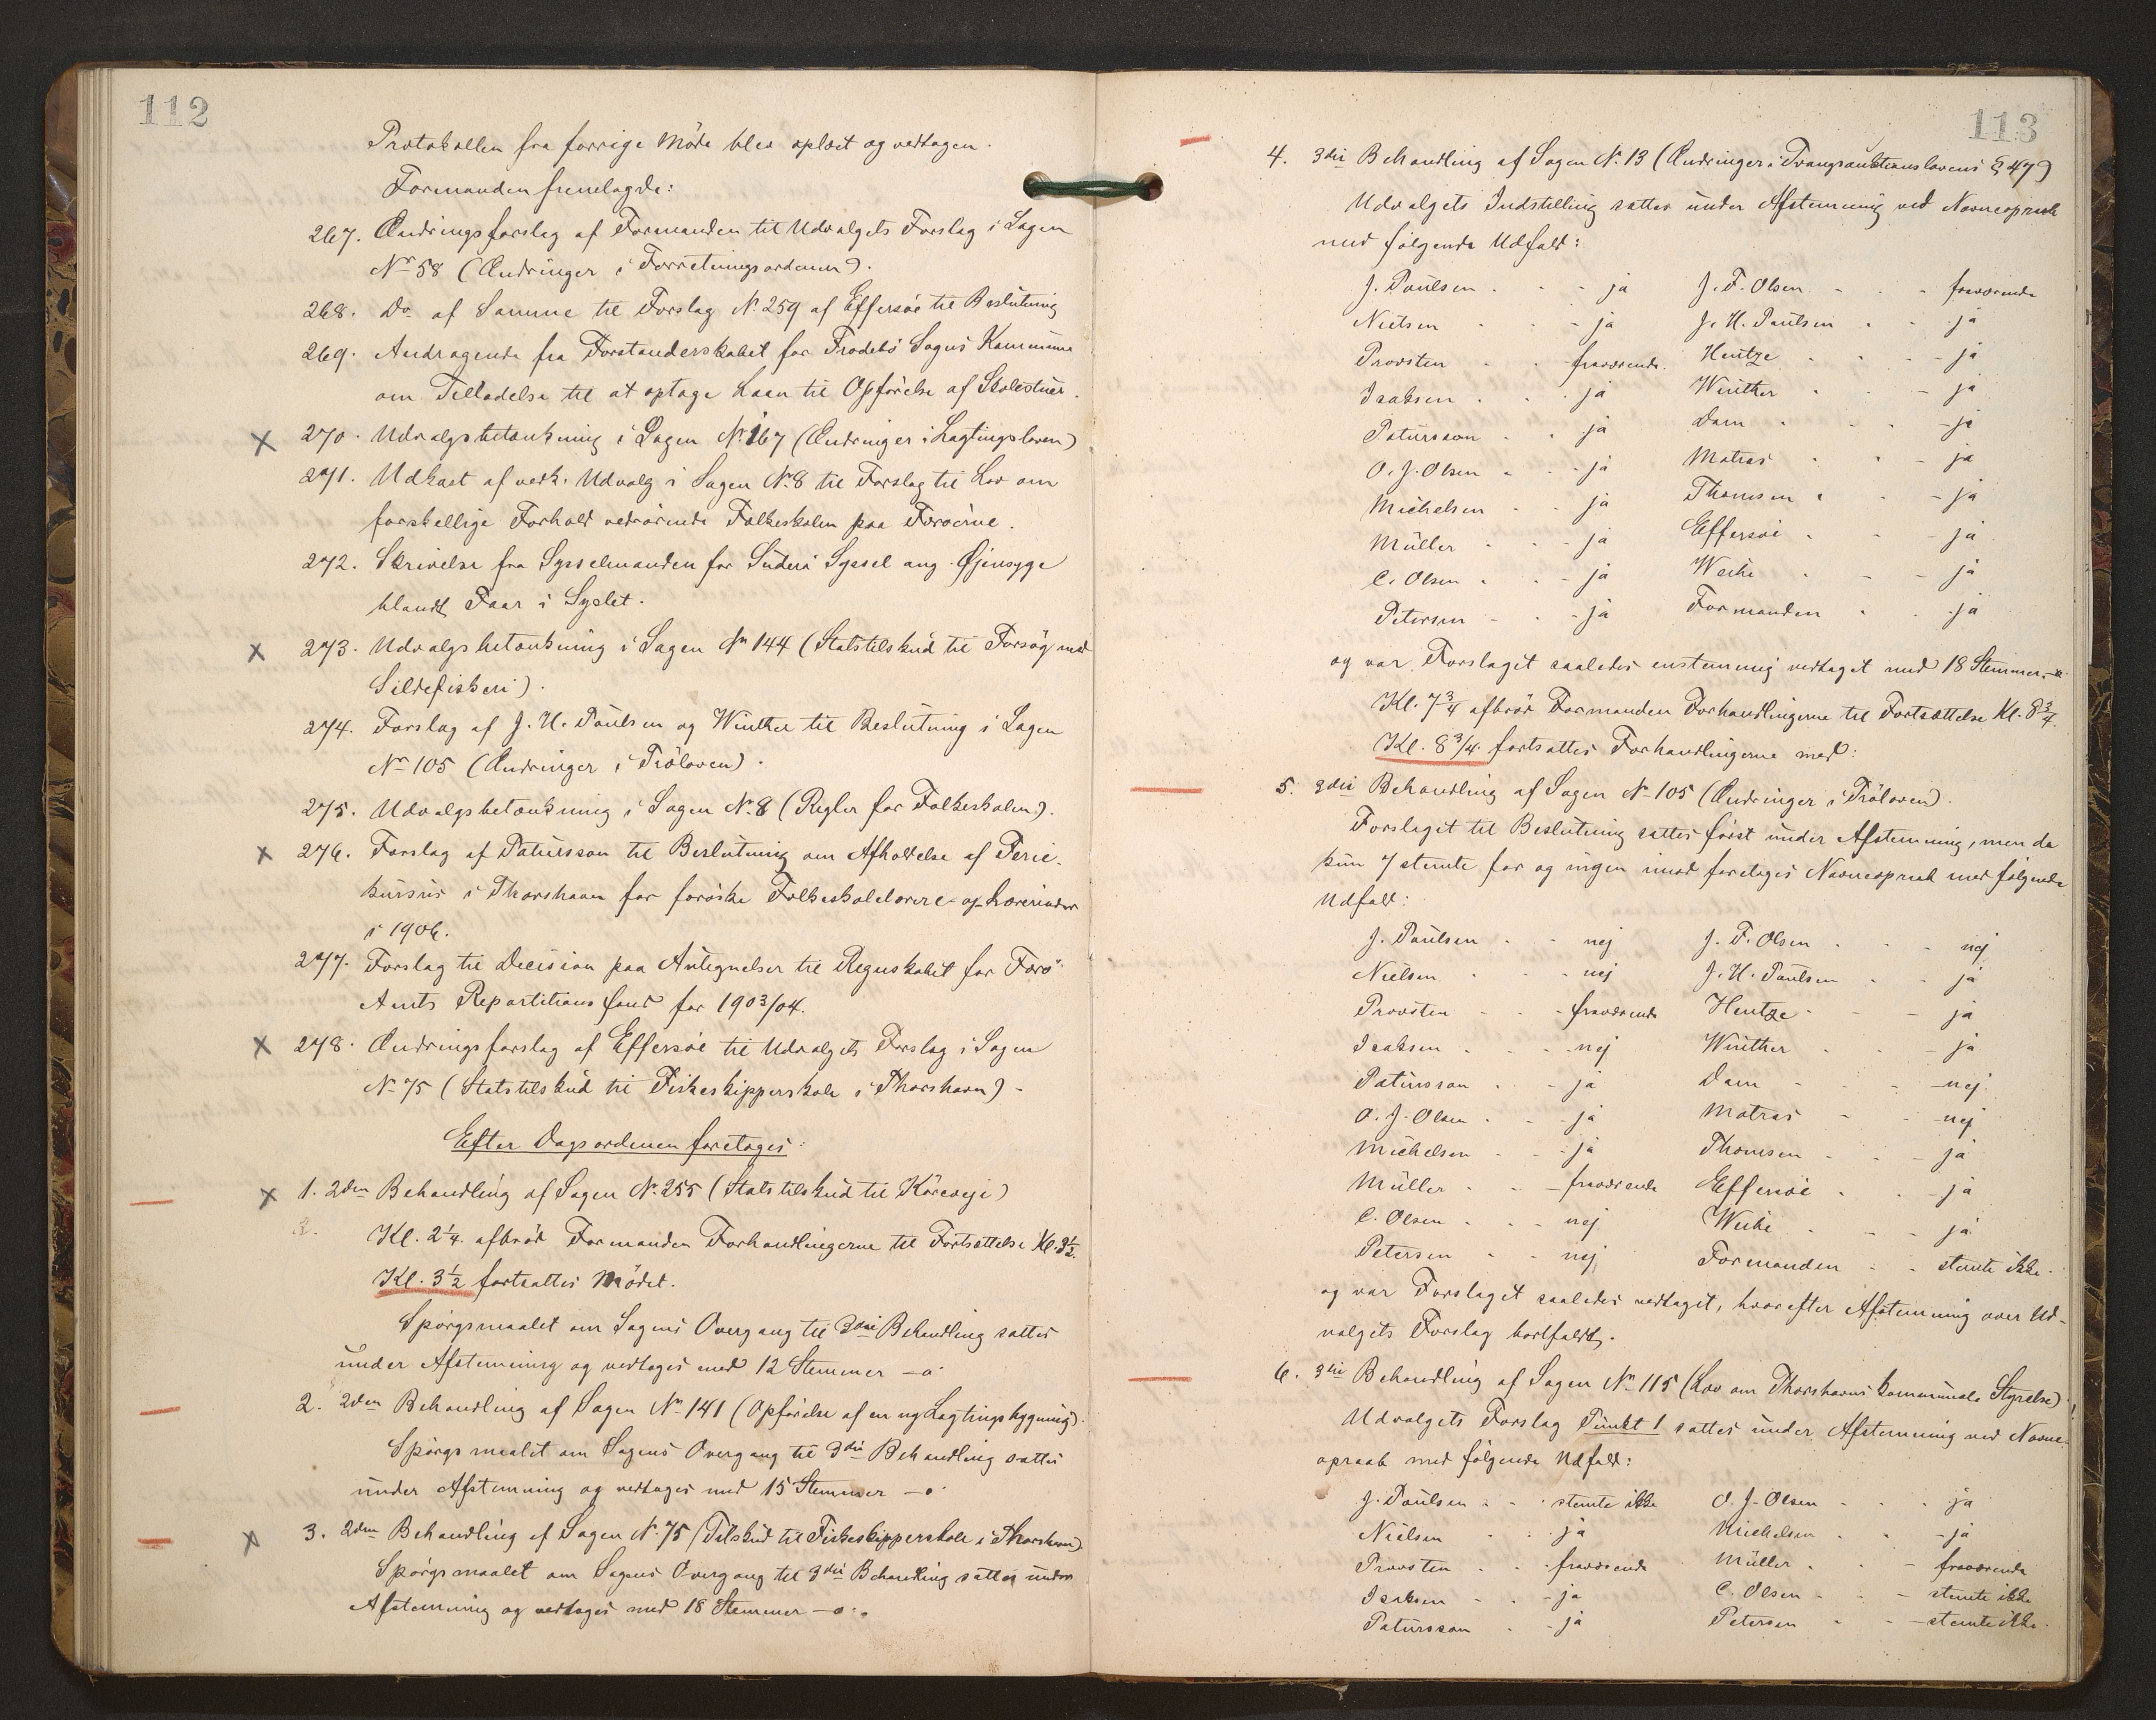 112
Protokollen fra forrige Møde blev oplæst og vedtagen.
Formanden fremlagde:
267. Ændringsforslag af Formanden til Udvalgets Forslag i Sagen
Nr 58 (Ændringer i Forretningsordenen).
268. Do af Samme til Forslag Nr 259 af Effersøe til Beslutning
269. Andragende fra Forstanderskabet for Frodebø Sogns Kommune
om Tilladelse til at optage Laan til Opførelse af Skolestuer.
270. Udvalgsbetænkning i Sagen Nr 167 (Ændringer i Lagtingsloven)
271. Udkast af vedk. Udvalg i Sagen Nr 8 til Forslag til Lov om
forskellige Forhold vedrørende Folkeskolen paa Færøerne.
272. Skrivelse fra Sysselmanden for Suderø Syssel ang. Øjensyge
blandt Faar i Syslet.
273. Udvalgsbetænkning i Sagen Nr 144 (Statstilskud til Forsøg med
Sildefiskeri).
274. Forslag af J. H. Poulsen og Winther til Beslutning i Sagen
Nr 105 (Ændringer i Ølloven).
275. Udvalgsbetænkning i Sagen Nr 8 (Regler for Folkeskolen).
276. Forslag af Patursson til Beslutning om Afholdelse af Ferie-
kursus i Thorshavn for færøske Folkeskolelærere og Lærerinder
i 1906.
277. Forslag til Decision paa Antegnelser til Regnskabet for Færø
Amts Repartitionsfond for 1903/04.
278. Ændringsforslag af Effersøe til Udvalgets Forslag i Sagen
Nr 75 (Statstilskud til Fiskeskipperskole i Thorshavn) -
Efter Dagsordenen foretoges:
1. 2den Behandling af Sagen Nr. 255 (Statstilskud til Køreveje)
Kl. 2¼ afbrød Formanden Forhandlingerne til Fortsættelse Kl. 3½.
Kl. 3½ fortsattes Mødet.
Spørgsmaalet om Sagens Overgang til 3die Behandling sattes
under Afstemning og vedtoges med 12 Stemmer - o
2. 2den Behandling af Sagen Nr 141 (Opførelse af en ny Lagtingsbygning).
Spørgsmaalet om Sagens Overgang til 3die Behandling sattes
under Afstemning og vedtoges med 15 Stemmer - o
3. 2den Behandling af Sagen Nr. 75 (Tilskud til Fiskeskipperskole i Thorshavn)
Spørgsmaalet om Sagens Overgang til 3die Behandling sattes under
Afstemning og vedtoges med 18 Stemmer - o.
113
4. 3die Behandling af Sagen Nr. 13 (Ændringer i Tvangsauktionslovens § 47)
Udvalgets Indstilling sattes under Afstemning ved Navneopraab
med følgende Udfald:
J. Poulsen - ja J. F. Olsen - fraværende
Nielsen - ja J. H. Poulsen - ja
Provsten - fraværende Hentze - ja
Isaksen - ja Winther - ja
Patursson - ja Dam - ja
O. J. Olsen - ja Matras - ja
Michelsen - ja Thomsen - ja
Müller - ja Effersøe - ja
C. Olsen - ja Weihe - ja
Petersen - ja Formanden - ja
og var Forslaget saaledes enstemmig vedtaget med 18 Stemmer.
Kl. 7¾ afbrød Formanden Forhandlingerne til Fortsættelse Kl. 8¾.
Kl. 8¾ fortsattes Forhandlingerne med:
5. 3die Behandling af Sagen Nr 105 (Ændringer i Ølloven).
Forslaget til Beslutning sattes først under Afstemning, men da
kun 7 stemte for og ingen imod foretoges Navneopraab med følgende
Udfald:
J. Poulsen - nej J. F. Olsen - nej
Nielsen - nej J. H. Poulsen - ja
Provsten - fraværende Hentze - ja
Isaksen - nej Winther - ja
Patursson - ja Dam - nej
O. J. Olsen - ja Matras - nej
Michelsen - ja Thomsen - ja
Müller - fraværende Effersøe - ja
C. Olsen - nej Weihe - ja
Petersen - nej Formanden - stemte ikke.
og var Forslaget saaledes vedtaget, hvorefter Afstemning over Ud-
valgets Forslag bortfaldt.
6. 3die Behandling af Sagen Nr 115 (Lov om Thorshavns kommunale Styrelse).
Udvalgets Forslag Punkt 1 sattes under Afstemning ved Navne-
opraab med følgende Udfald:
J. Poulsen - stemte ikke O. J. Olsen - ja
Nielsen - ja Michelsen - ja
Provsten - fraværende Müller - fraværende
Isaksen - ja C. Olsen - stemte ikke
Patursson - ja Petersen - stemte ikke.